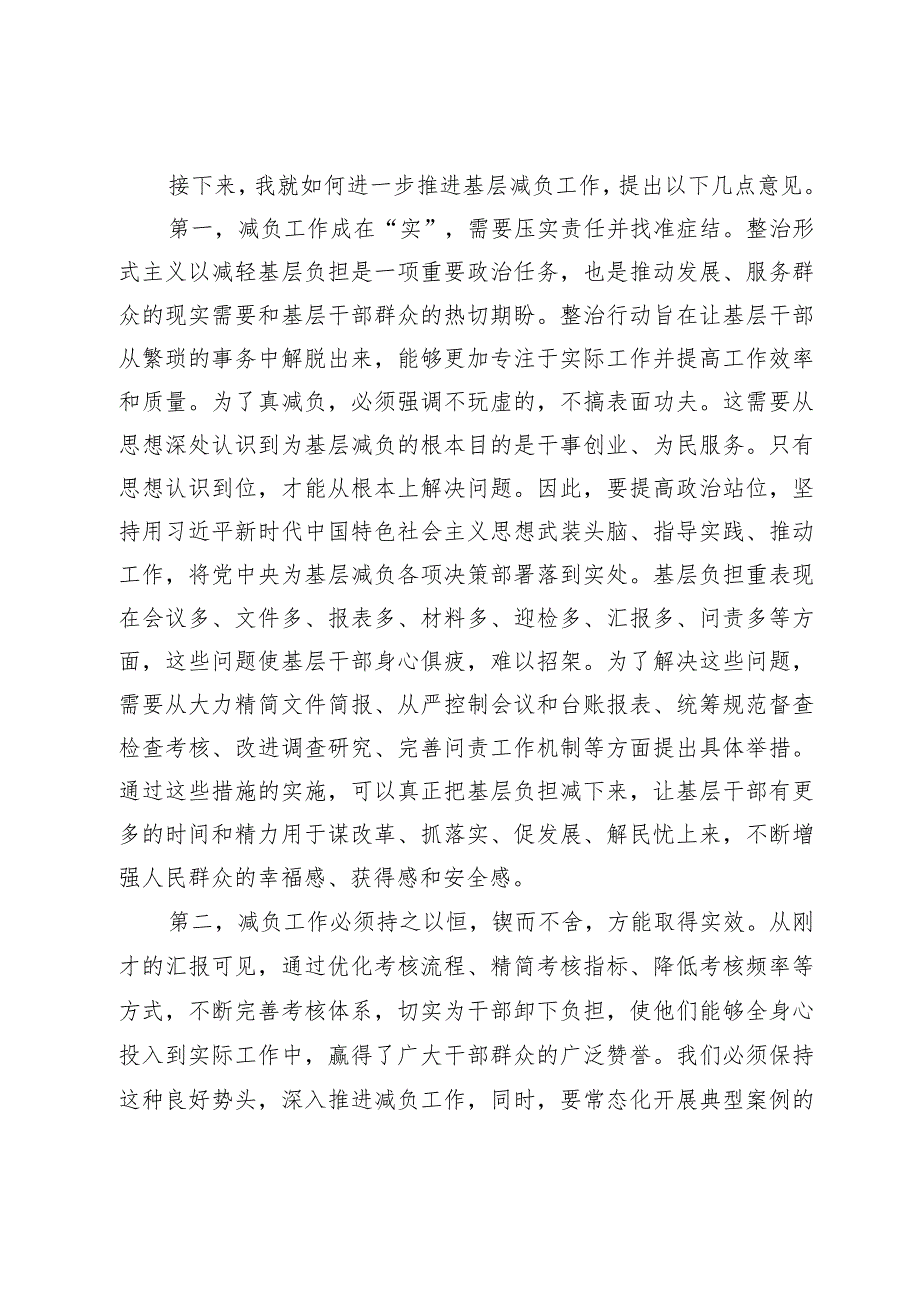 接下来，我就如何进一步推进基层减负工作，提出以下几点意见。
第一，减负工作成在“实”，需要压实责任并找准症结。整治形
式主义以减轻基层负担是一项重要政治任务，也是推动发展、服务群
众的现实需要和基层干部群众的热切期盼。整治行动旨在让基层干部
从繁琐的事务中解脱出来，能够更加专注于实际工作并提高工作效率
和质量。为了真减负，必须强调不玩虚的，不搞表面功夫。这需要从
思想深处认识到为基层减负的根本目的是干事创业、为民服务。只有
思想认识到位，才能从根本上解决问题。因此，要提高政治站位，坚
持用习近平新时代中国特色社会主义思想武装头脑、指导实践、推动
工作，将党中央为基层减负各项决策部署落到实处。基层负担重表现
在会议多、文件多、报表多、材料多、迎检多、汇报多、问责多等方
面，这些问题使基层干部身心俱疲，难以招架。为了解决这些问题，
需要从大力精简文件简报、从严控制会议和台账报表、统筹规范督查
检查考核、改进调查研究、完善问责工作机制等方面提出具体举措。
通过这些措施的实施，可以真正把基层负担减下来，让基层干部有更
多的时间和精力用于谋改革、抓落实、促发展、解民忧上来，不断增
强人民群众的幸福感、获得感和安全感。
第二，减负工作必须持之以恒，锲而不舍，方能取得实效。从刚
才的汇报可见，通过优化考核流程、精简考核指标、降低考核频率等
方式，不断完善考核体系，切实为干部卸下负担，使他们能够全身心
投入到实际工作中，赢得了广大干部群众的广泛赞誉。我们必须保持
这种良好势头，深入推进减负工作，同时，要常态化开展典型案例的